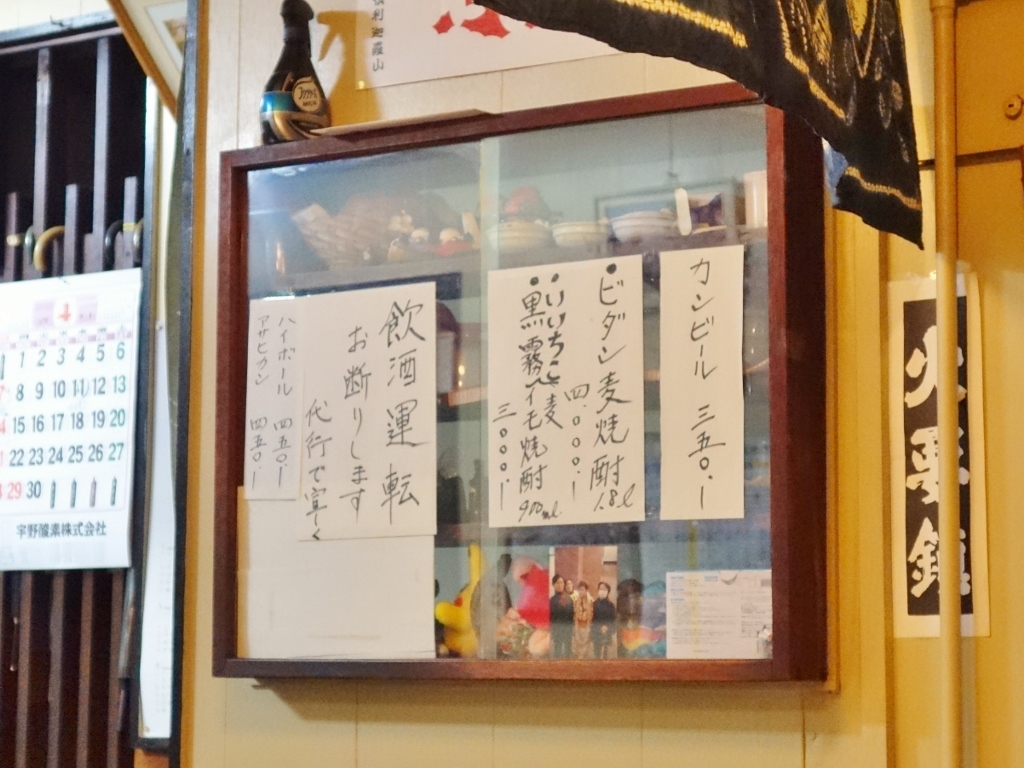 カンビール 三五〇.ー
•ビダン麦焼酎 1.8ℓ
四.〇〇〇.ー
•いいちこ 麦
•黒霧 イモ焼酎 900ml
三〇〇〇.ー
飲酒運転
お断りします
代行で宜しく
ハイボール 四五〇ー
アサヒカン 四五〇.ー
4
1 2 3 4 5 6
7 8 9 10 11 12 13
14 15 16 17 18 19 20
21 22 23 24 25 26 27
28 29 30
宇野酸素株式会社
鎮